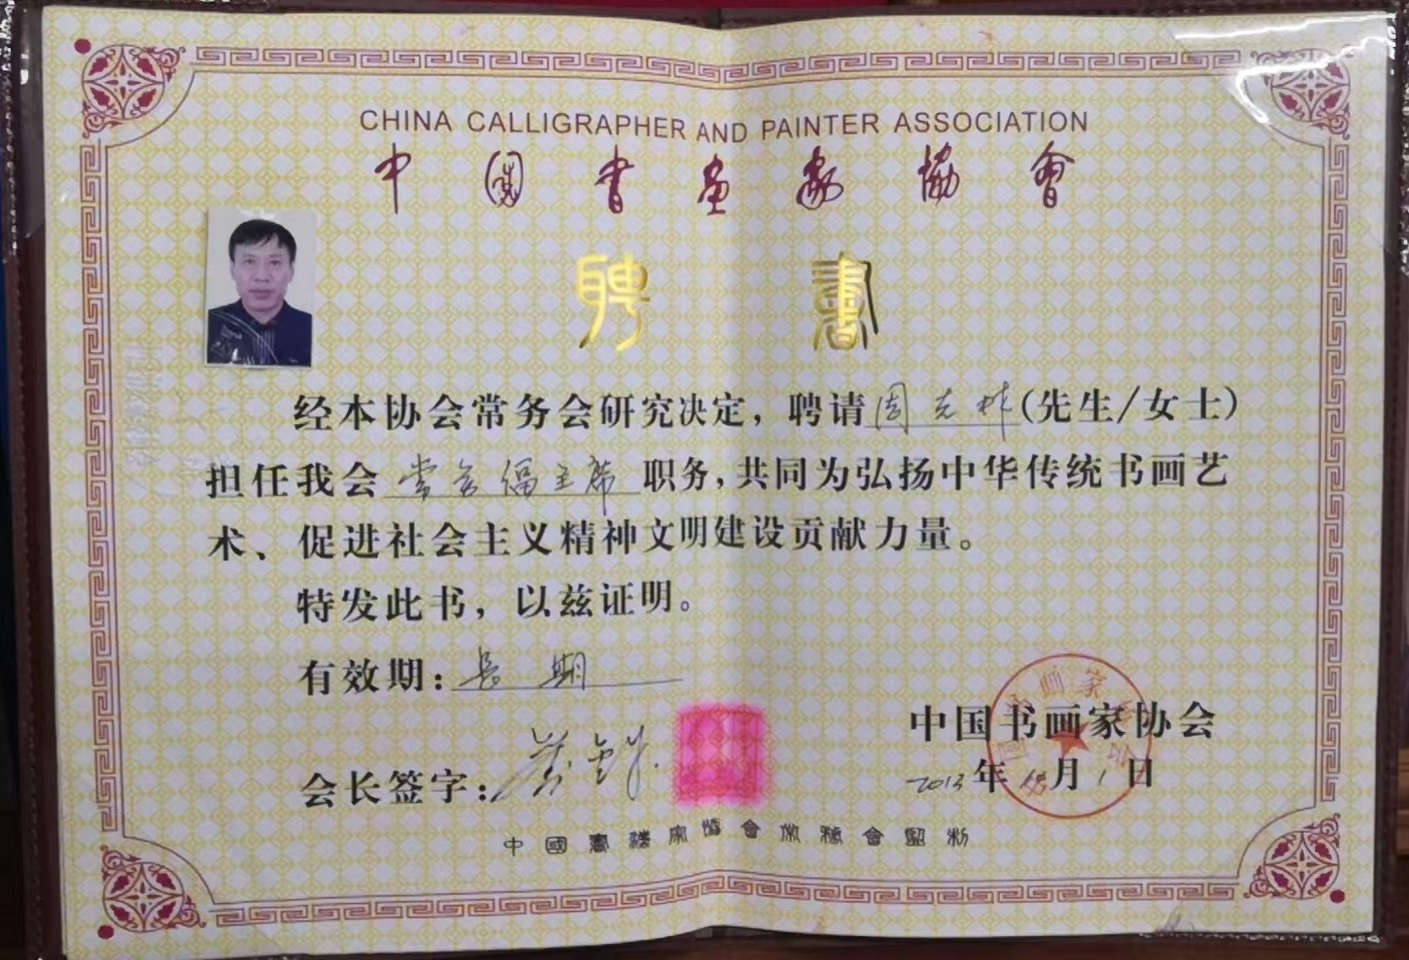 CHINA CALLIGRAPHER AND PAINTER ASSOCIATION
中國書画家協會
聘書
经本协会常务会研究决定，聘请周克林(先生/女士)
担任我会常务副主席职务，共同为弘扬中华传统书画艺
术、促进社会主义精神文明建设贡献力量。
特发此书，以兹证明。
有效期：長期
中国书画家协会
会长签字：
2013年 月1日
中國書法家協會常務會監制